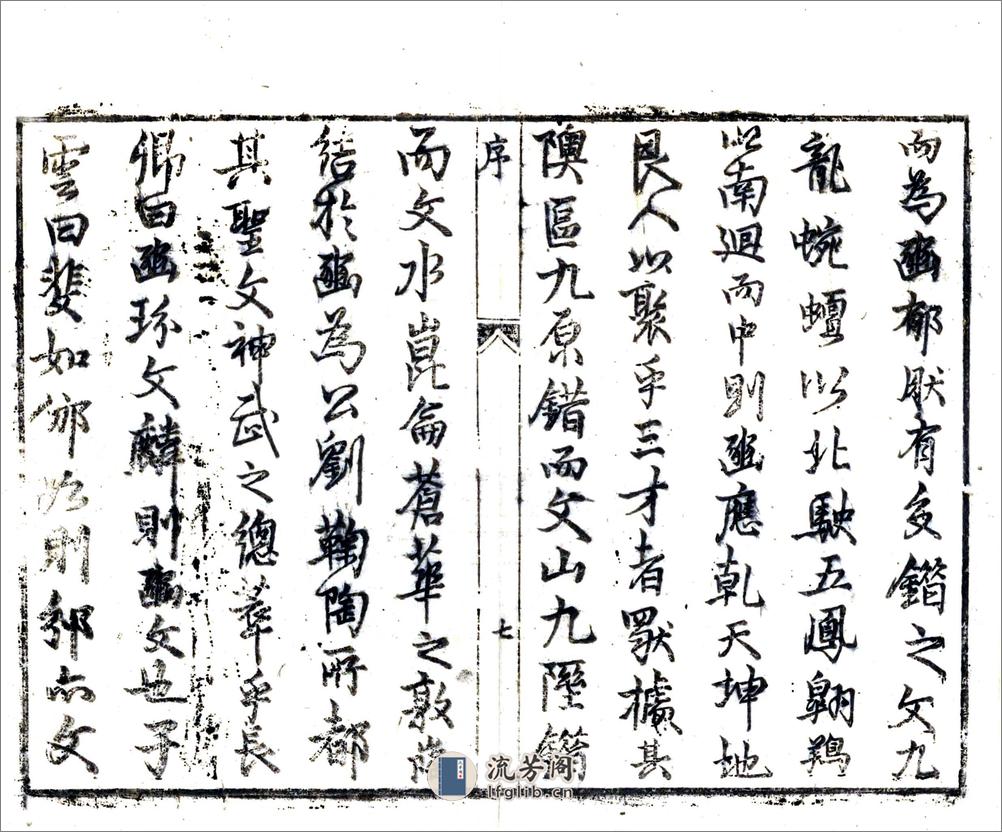 而為豳郁肰有文鐕之文九
龍蜿蟺以北駛五鳳翶鶏
以南迴而中則豳應乾天坤地
艮人以聚乎三才者獸據其
隩區九原錯而文山九陘鐕
序
七
而文水崑侖蒼華之敦
结於豳為公劉鞠陶所都
其聖文神武之總萃乎長
卿曰豳珎文麟則豳文也子
雲曰斐如邠如則邠亦文
流芳阁
lfglib.cn